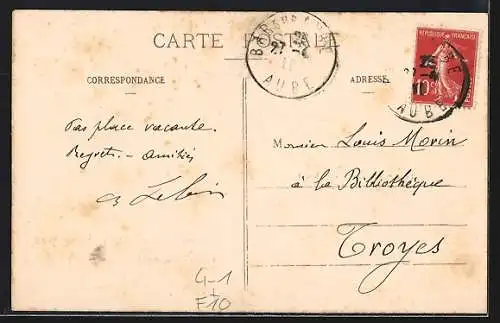 CARTE POSTALE
CORRESPONDANCE
ADRESSE
BAR SUR AUBE
27 -4
AUBE
REPUBLIQUE FRANÇAISE
10
AUBE
Pas place vacante.
Regrets. – amitiés
Monsieur Louis Morin
à la Bibliothèque
Troyes
G-1
F10